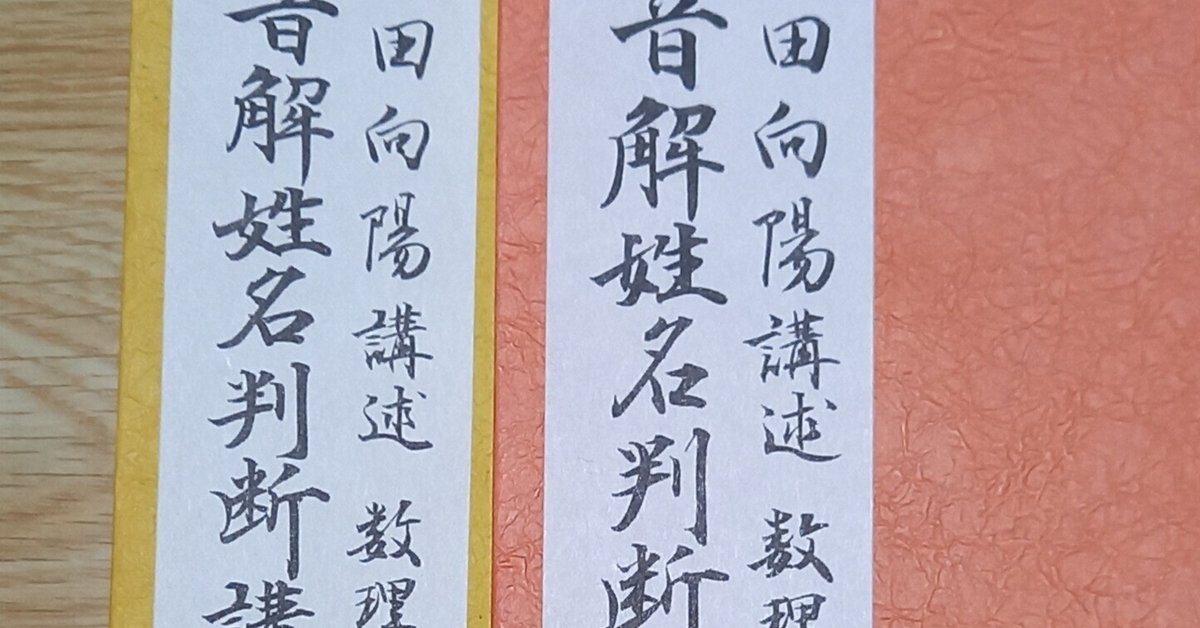 田向陽講述 数理
音解姓名判断
田向陽講述 数理
音解姓名判断講